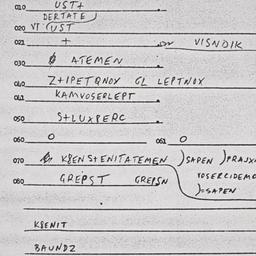 010 UST+
DERTATE
020 VT (UST
021 + VISNOIK
030 ATEMEN
040 Z+IPETQNOY GL LEPTNOX
041 KAMVOSERLEPT
050 S+LUXPERC
060 O 061 O
070 KBENS+ENITATEMEN )SAPEN )PRAJX
VOSERCIDEM
080 GREPST GREPSN )=SAPEN
KBENIT
BAUNDZ